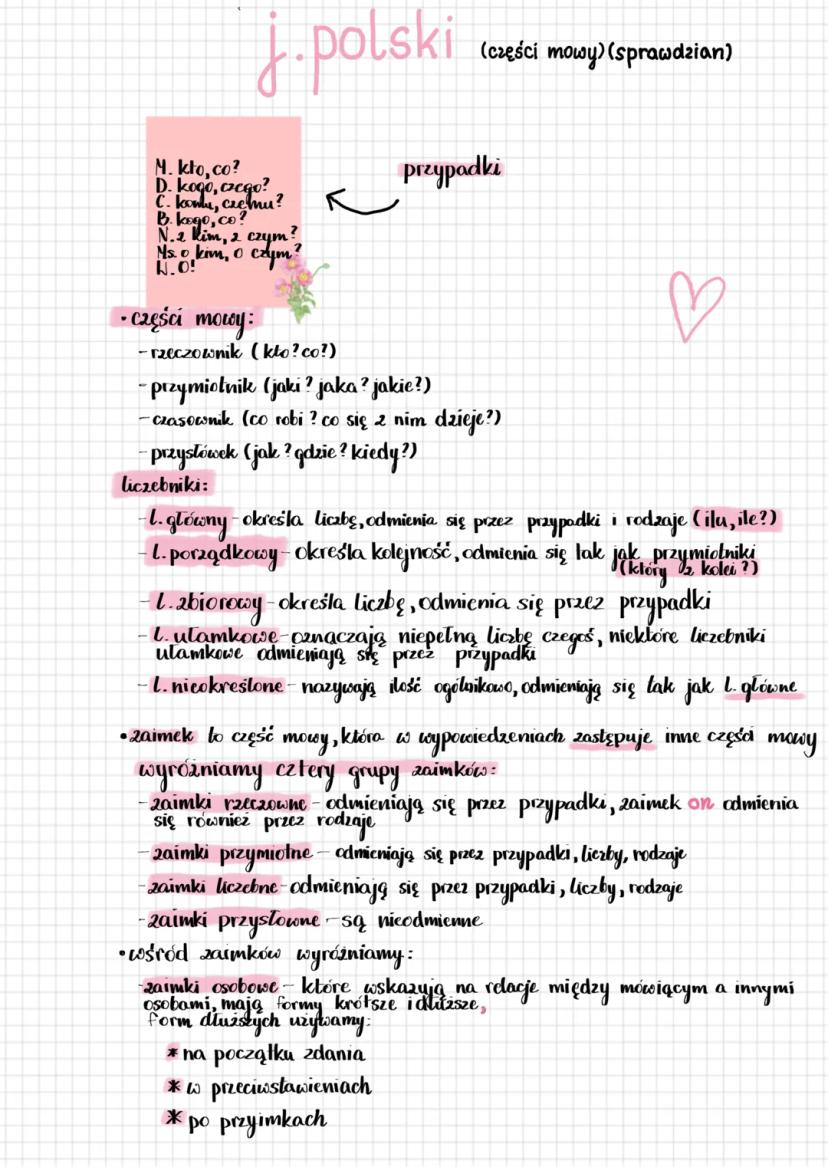 j.polski (części mowy)(sprawdzian)
M. kto, co?
D. kogo, czego?
C. komu, czemu?
B. kogo, co?
N. z kim, z czym?
Ms. o kim, o czym?
W. O!
przypadki
•części mowy:
-rzeczownik (kto?co?)
-przymiotnik (jaki? jaka? jakie?)
-czasownik (co robi? co się z nim dzieje?)
-przysłówek (jak? gdzie? kiedy?)
liczebniki:
-l.główny-określa liczbę, odmienia się przez przypadki i rodzaje (ilu, ile?)
-l.porządkowy-określa kolejność, odmienia się tak jak przymiotniki
(który z kolei?)
-l.zbiorowy-określa liczbę, odmienia się przez przypadki
-l.ułamkowe-oznaczają niepełną liczbę czegoś, niektóre liczebniki
ułamkowe odmieniają się przez przypadki
-l.nieokreślone-nazywają ilość ogólnikowo, odmieniają się tak jak l.główne
•zaimek to część mowy, która w wypowiedzeniach zastępuje inne części mowy
wyróżniamy cztery grupy zaimków:
-zaimki rzeczowne-odmieniają się przez przypadki, zaimek on odmienia
się również przez rodzaje
-zaimki przymiotne-odmieniają się przez przypadki, liczby, rodzaje
-zaimki liczebne-odmieniają się przez przypadki, liczby, rodzaje
-zaimki przysłowne-są nieodmienne
•wśród zaimków wyróżniamy:
-zaimki osobowe-które wskazują na relacje między mówiącym a innymi
osobami, mają formy krótsze i dłuższe,
form dłuższych używamy:
*na początku zdania
*w przeciwstawieniach
*po przyimkach